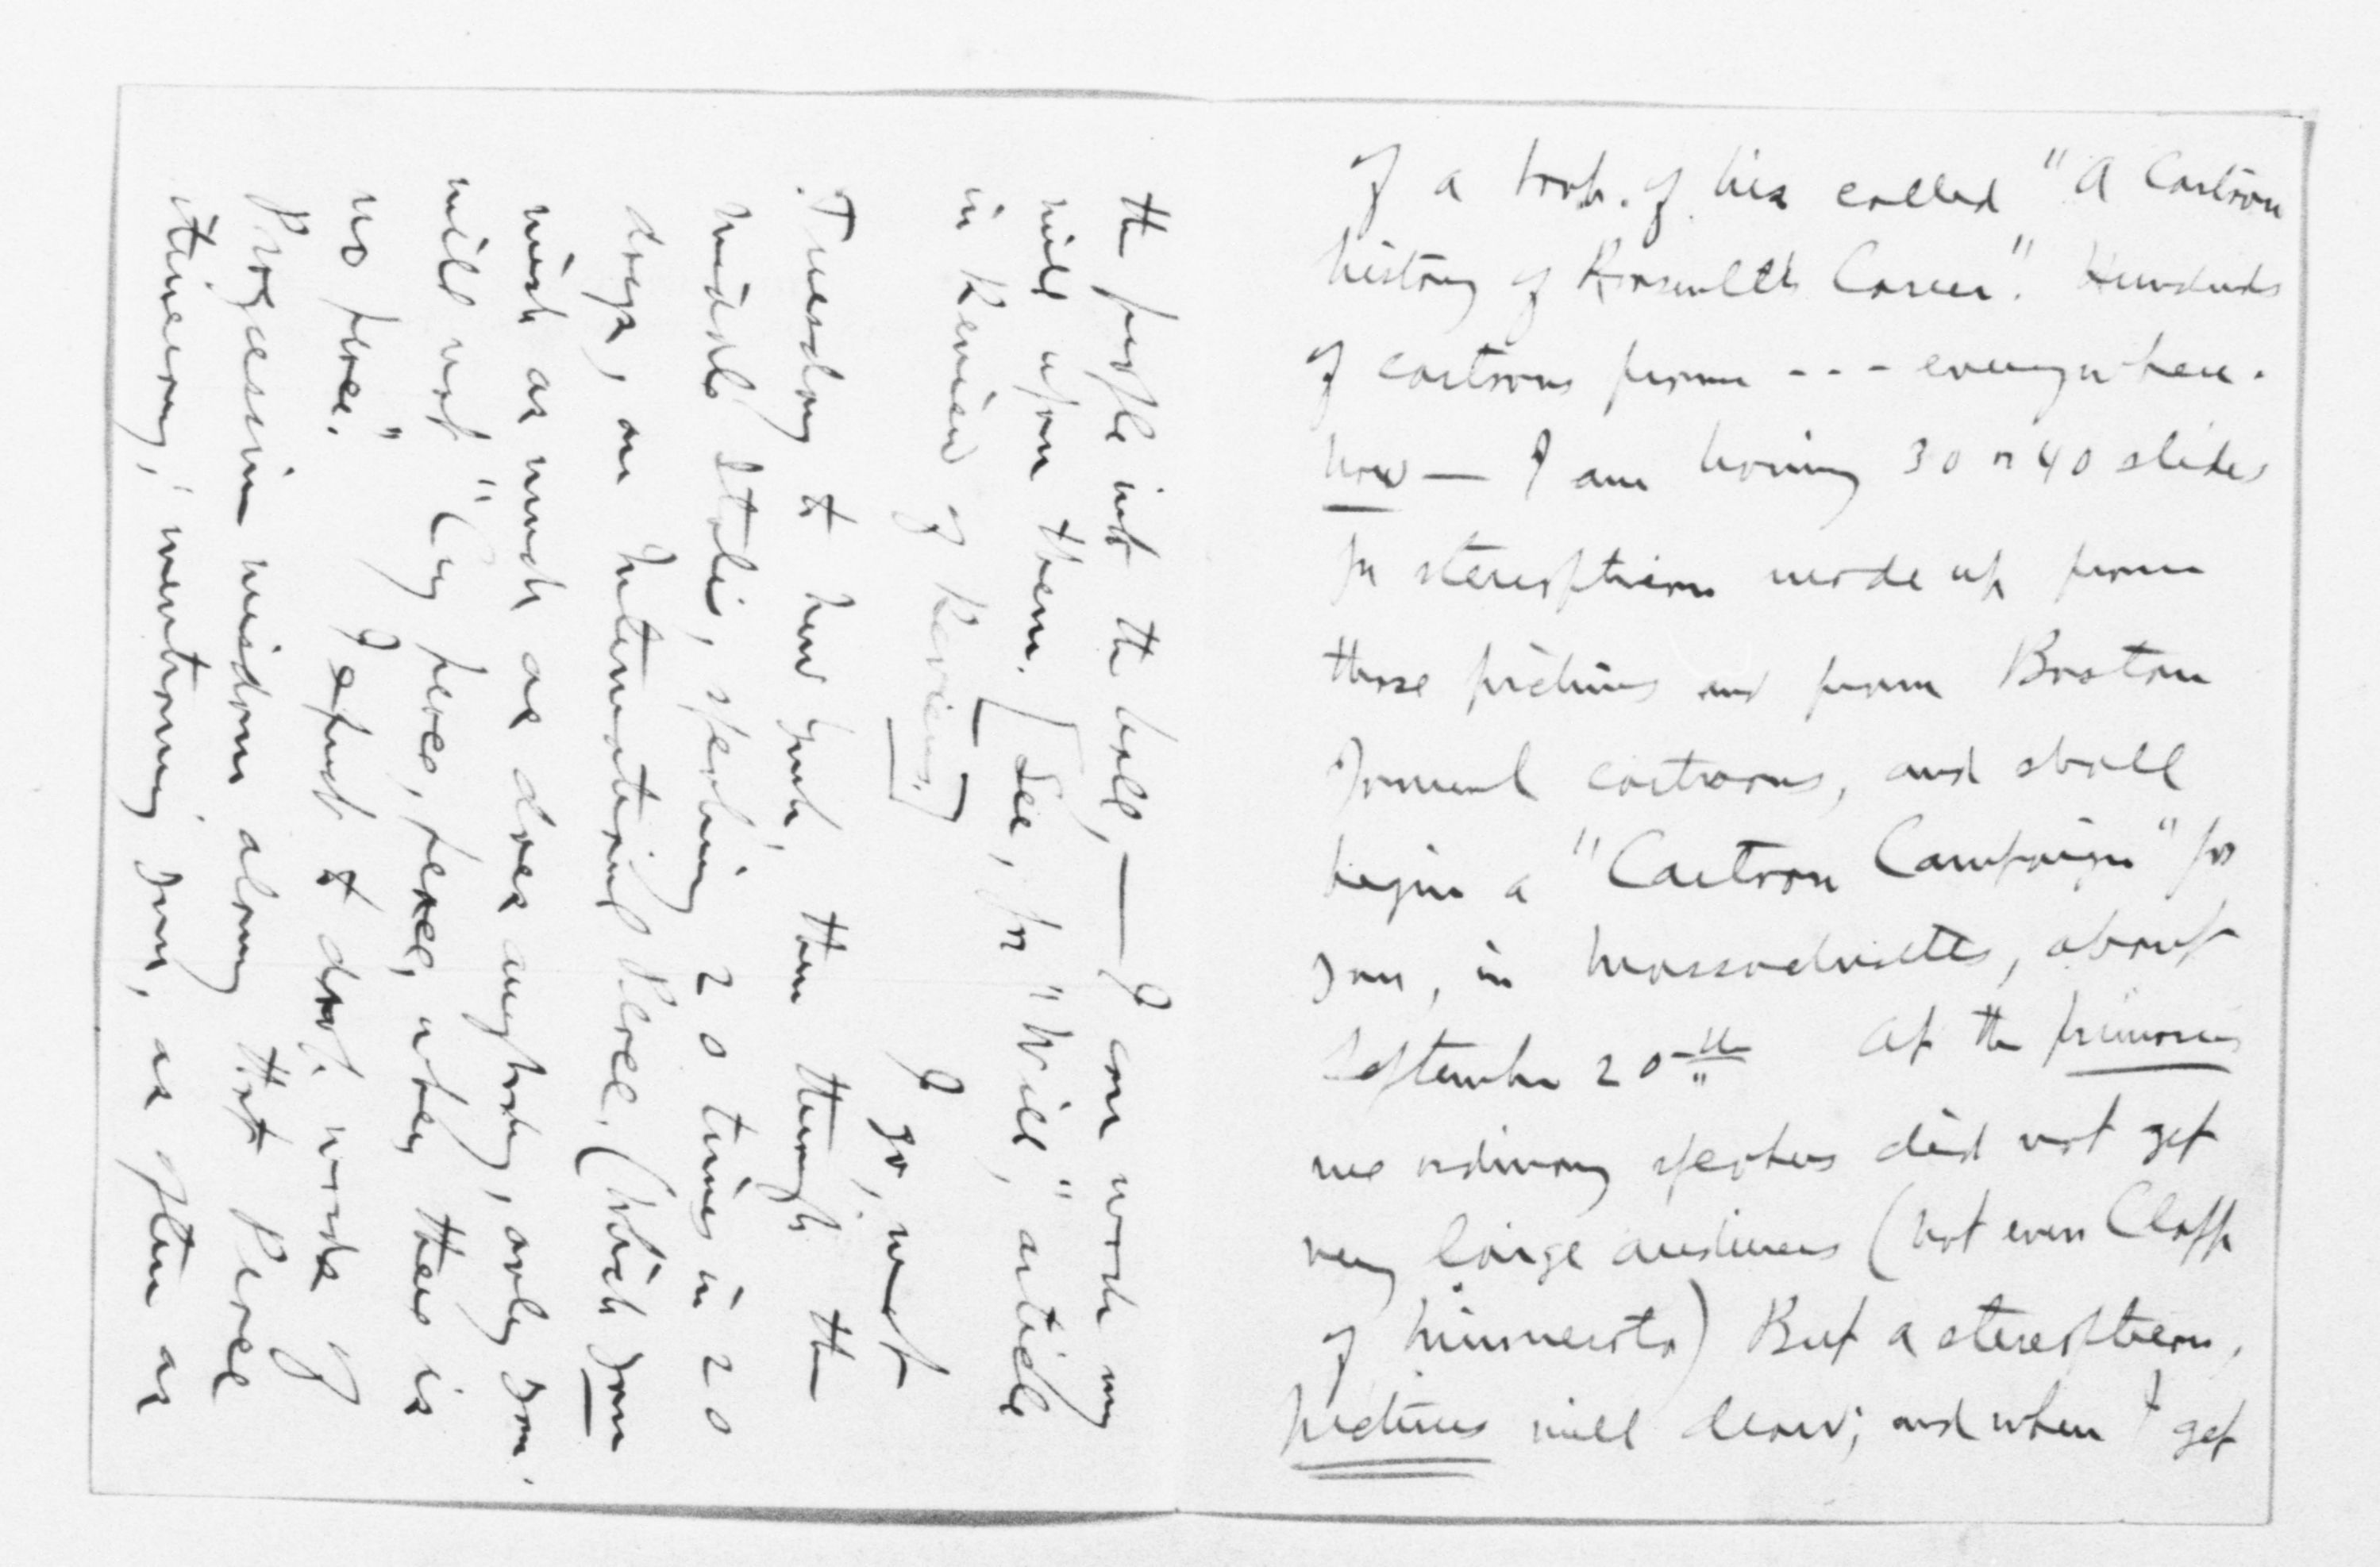 of a book of his called "A Cartoon
history of Roosevelt's Career". Hundreds
of cartoons from - - - everywhere.
Now — I am having 30 or 40 slides
for stereopticon made up from
those pictures and from Boston
Journal cartoons, and shall
begin a "Cartoon Campaign" for
you, in Massachusetts, about
September 20th At the primaries
we ordinary speakers did not get
very large audiences (not even Clapp
of Minnesota) But a stereopticon,
pictures will draw; and when I get
the people into the hall, — I can work my
will upon them. [See, for "Will," article
in Review of Reviews.]
I go, next
Tuesday to New York, then through the
Middle States, speaking 20 times in 20
days, on International Peace. (Which you
wish as much as does anybody, only you
will not "Cry peace, peace, when there is
no peace." I expect to drop words of
Progressive wisdom along that Peace
itinerary, mentioning you, as often as